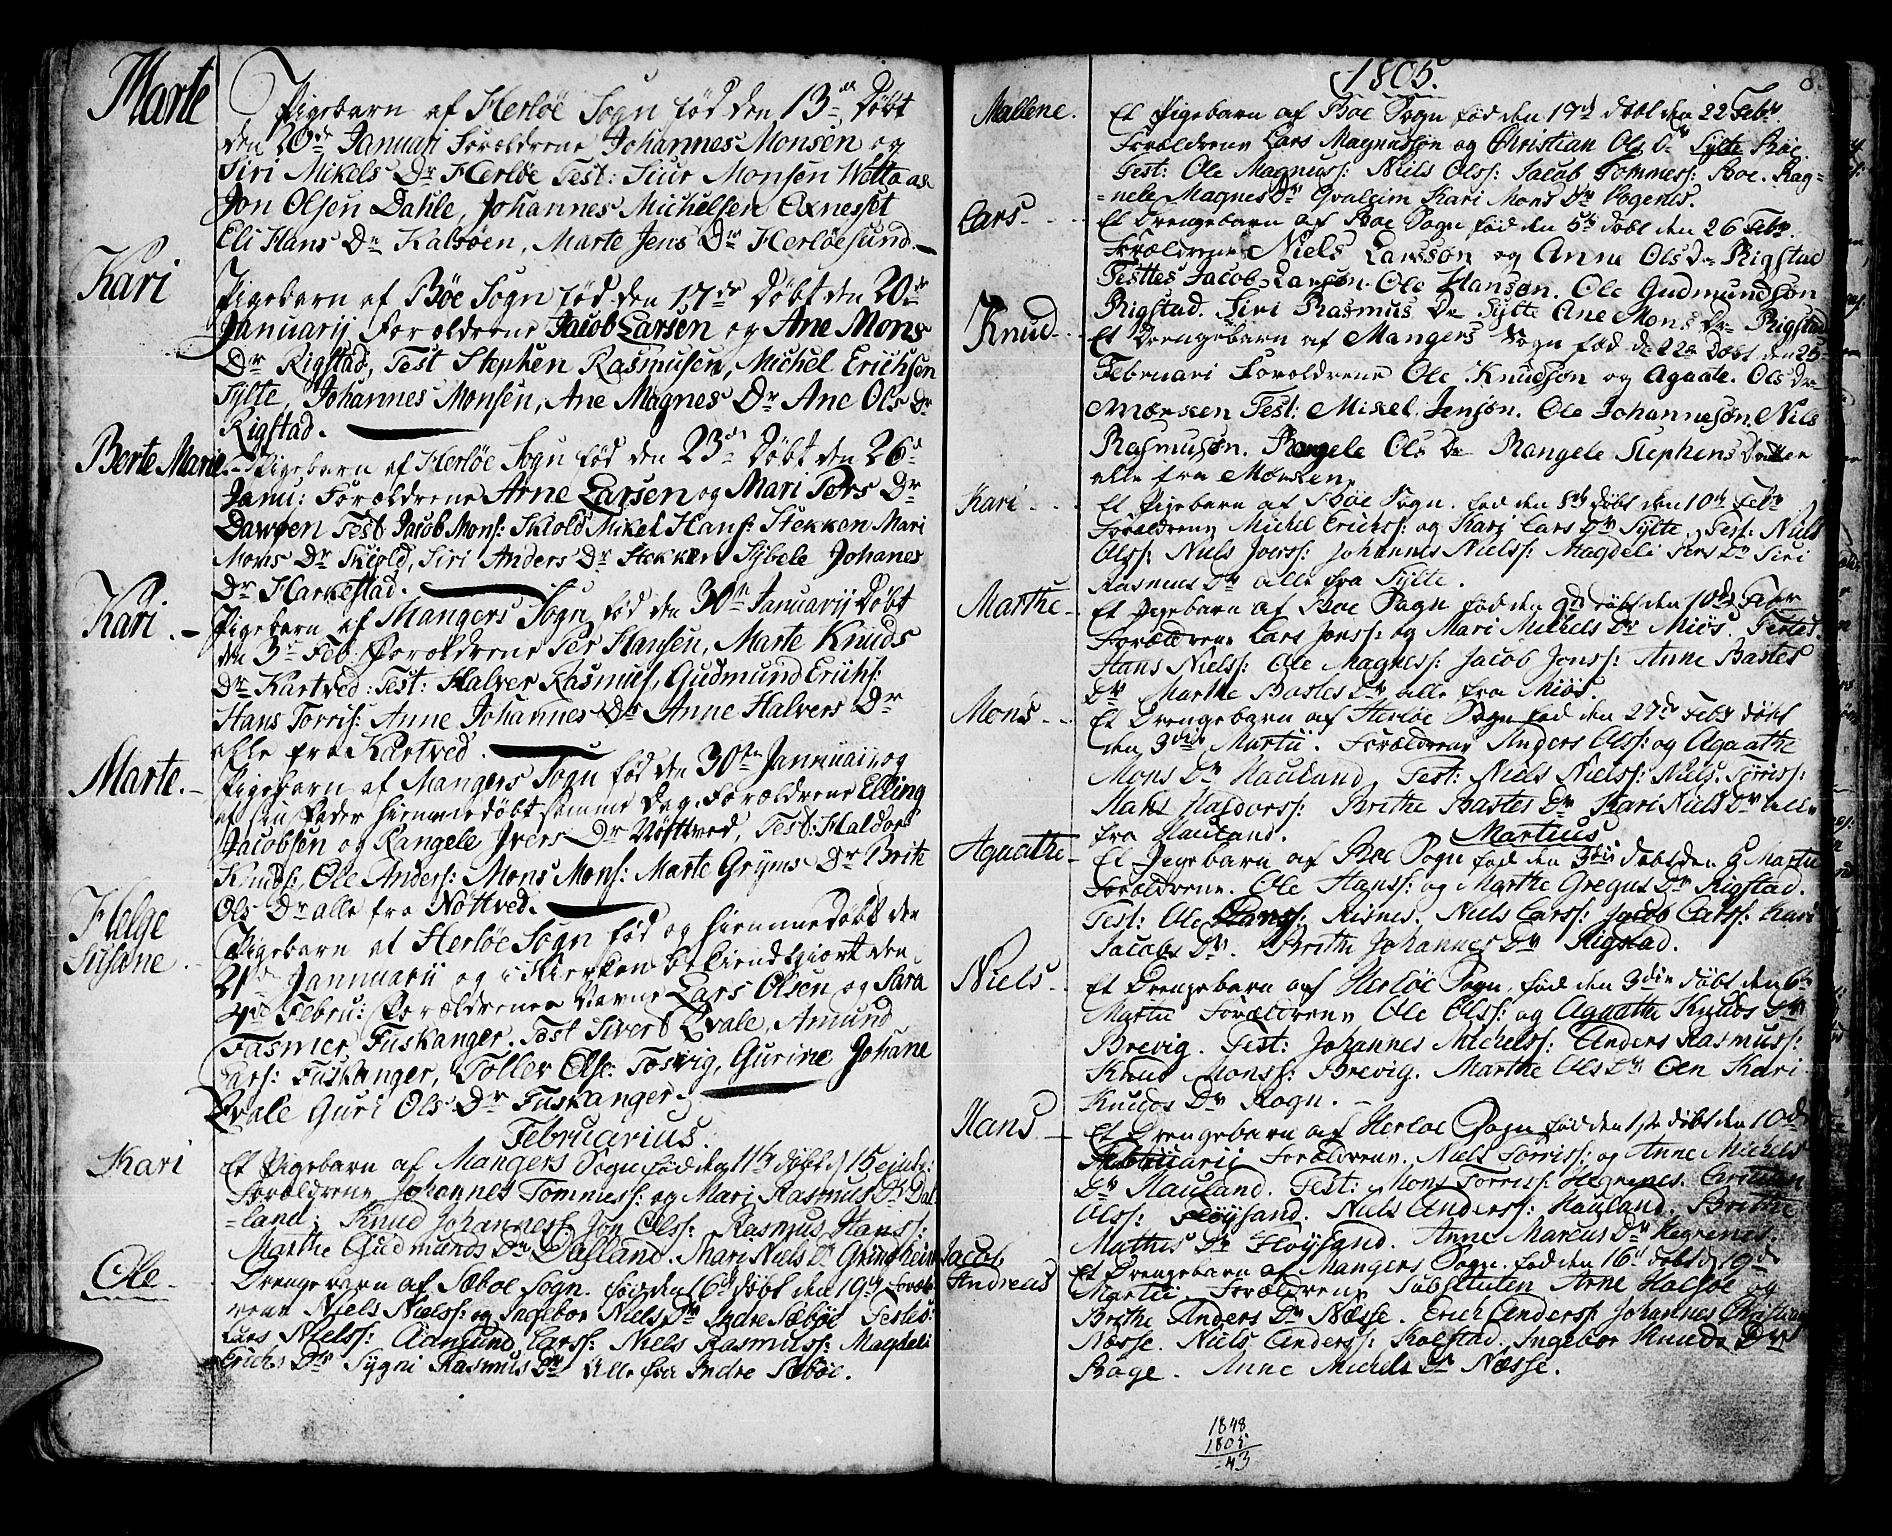 Marte
Pigebarn af Herløe Sogn fød den 13de Døbt
den 20de Januari Foroldrene Johannes Monsen og
Siri Mikels Dr Herløe Test: Siur Monsen
Jon Olsen Dahle, Johannes Michelsen
Eli Hans Dr Kalsøen, Marte Jens Dr Herløesund.
Kari
Pigebarn af Böe Sogn fød den 17de Døbt den 20de
Januarij foroldrene Jacob Larsen og Ane Mons
Dr Rigstad, Test Stephen Rasmusen, Michel Erichsen
Sylte, Johannes Monsen, Ane Magnes Dr Ane Ols Dr
Rigstad.
Berte Marie
Pigebarn af Herløe Sogn fød den 23de Døbt den 26de
Janu: Foroldrene Arne Larsen og Mari Pers Dr
Dawgen Test Jacob Mons: Skiold Mikel Hans: Stekken Mari
Mons Dr Skiold, Siri Anders Dr Stekken Sybele Johanes
Dr Harkestad.
Kari.
Pigebarn af Mangers Sogn fød den 30te Januarij Døbt
den 3de Feb: foroldrene Per Hansen, Marte Knuds
Dr Kartved: Test: Halver Rasmus, Gudmund Erichs:
Hans Torris: Anne Johannes Dr Anne Halvers Dr
alle fra Kartved.
Marte.
Pigebarn af Mangers Sogn fød den 30te Januari, og
af sin fader hiemmedøbt samme Dag. Foroldrene Elling
Jacobsen og Rangele Ivers Dr Nöttved, Test: Haldor
Knuds:, Ole Anders: Mons Mons: Marte Gryms Dr Brite
Ols Dr alle fra Nöttved.
Helge
Susane
Pigebarn af Herløe Sogn fød og hiemmedøbt den
21de Januarij og i Kirken bekiendtgiort den
4de Febru: foroldrenes Navne Lars Olsen og Sara
Fasmer, Fuskanger. Test Sivert Qvale, Amund
Lars: Fuskanger, Toller Olse: Tosvig, Gurine Johane
Qvale Guri Ols Dr Fuskanger.
Februarius.
Kari
Et Pigebarn af Mangers Sogn fød den 11te døbt d 15 ejusd:
Foroldrene Johannes Tommess: og Mari Rasmus Dr Dal
=land: Knud Johanness: Jon Olss: Rasmus Hanss:
Marthe Gudmunds Dr Dalland. Mari Niels Dr Grindheim
Ole
Drengebarn af Sæboe Sogn. fød den 16d døbt den 19d Foræl
=rene Niels Nielss: og Ingebor Niels Dr Indre Sæböe Testes:
Lars Nielss: Admund Larss: Niels Rasmuss: Magdeli
Erichs Dr Sygni Rasmus Dr alle fra Indre Sæböe.
1805.
8
Mallene.
Et Pigebarn af Boe Sogn fød den 17d døbt den 22 Febr.
Forældrene Lars Magnussøn og Christian Ols Dr Sylte Böe.
Test: Ole Magnuss: Niels Olss: Jacob Tommess: Boe. Rag=
=nele Magnes Dr Qvaleim Kari Mons Dr Vogenes.
Lars
Et Drengebarn af Boe Sogn fød den 5te døbt den 26 Feb.
Forældrene Niels Larssøn og Anne Olsd= Rigstad
Testtes Jacob Larsøn. Ole Hansøn. Ole Gudmundsøn
Rigstad. Siri Rasmus Dr Sylte Ane Mons Dr Rigstad
Knud
Et Drengebarn af Mangers Sogn fød d 22d døbt den 25
Februari Foroldrene Ole Knudsøn og Agaate. Ols Dr
Mørken Test: Mikel Jensøn. Ole Johannesøn. Nils
Rasmusøn. Rangele Ols Dr Rangele Stephens Datter
alle fra Mörken.
Kari
Et Pigebarn af Böe Sogn. fød den 8de døbt den 10de Febr
Forældrene Michel Erichs: og Kari Lars Dr Sylte. Test: Niels
Olss: Niels Joess: Johannes Nielss: Magdeli Pers Dr Siri
Rasmus Dr alle fra Sylte.
Marthe
Et Pigebarn af Boe Sogn fød den 9de døbt den 10de Febr
Forældrene Lars Jonss: og Mari Michels Dr Miøs. Testes
Hans Nielss: Ole Magness: Jacob Jonss: Anne Bastes
Dr Marthe Bastes Dr alle fra Miøs.
Mons
Et Drengebarn af Herløe Sogn fød den 27de Febr døbt
den 3die Martii. Forældrene Anders Olss: og Agaathe
Mons Dr Hauland. Test: Niels Nielss: Niels. Torriss:
Haldorss: Brithe Bastes Dr Kari Niels Dr alle
fra Hauland.
Martius
Agaathe
Et Pigebarn af Boe Sogn fød den 3die døbt den 6 Martii
Forældrene. Ole Hanss: og Marthe Gregus Dr Rigstad.
Test: Ole Hanss: Risnes. Niels Larss: Jacob Larss: Kari
Jacobs Dr. Brithe Johannes Dr Rigstad.
Niels
Et Drengebarn af Herløe Sogn. fød den 3die døbt den 6te
Martii Forældrene Ole Olss: og Agaathe Knuds Dr
Brevig. Test: Johannes Michelss: Anders Rasmuss:
Knud Monss: Brevig. Marthe Ols Dr Oen Kari
Knuds Dr Rogn.
Hans
Et Drengebarn af Herloe Sogn fød den 1ste døbt den 10de
Februarij Forældrene. Niels Torriss: og Anne Michels
Dr Hauland. Test: Mons Torriss: Hegrenes. Cristian
Olss: Fløysand. Niels Anderss: Hauland. Brithe
Mathis Dr Fløysand. Anne Marcus Dr Hegrenes.
Jacob
Andreas
Et Drengebarn af Mangers Sogn. fød den 16d døbt d 19de
Martii. Forældrene Substituten Arne Halsøe og
Brithe Anders Dr Næsse. Erich Anderss: Johannes Christians
Næsse. Niels Anderss: Kolstad, Ingebor Knuds Dr
Boge. Anne Michels Dr Næsse.
1848
1805
43